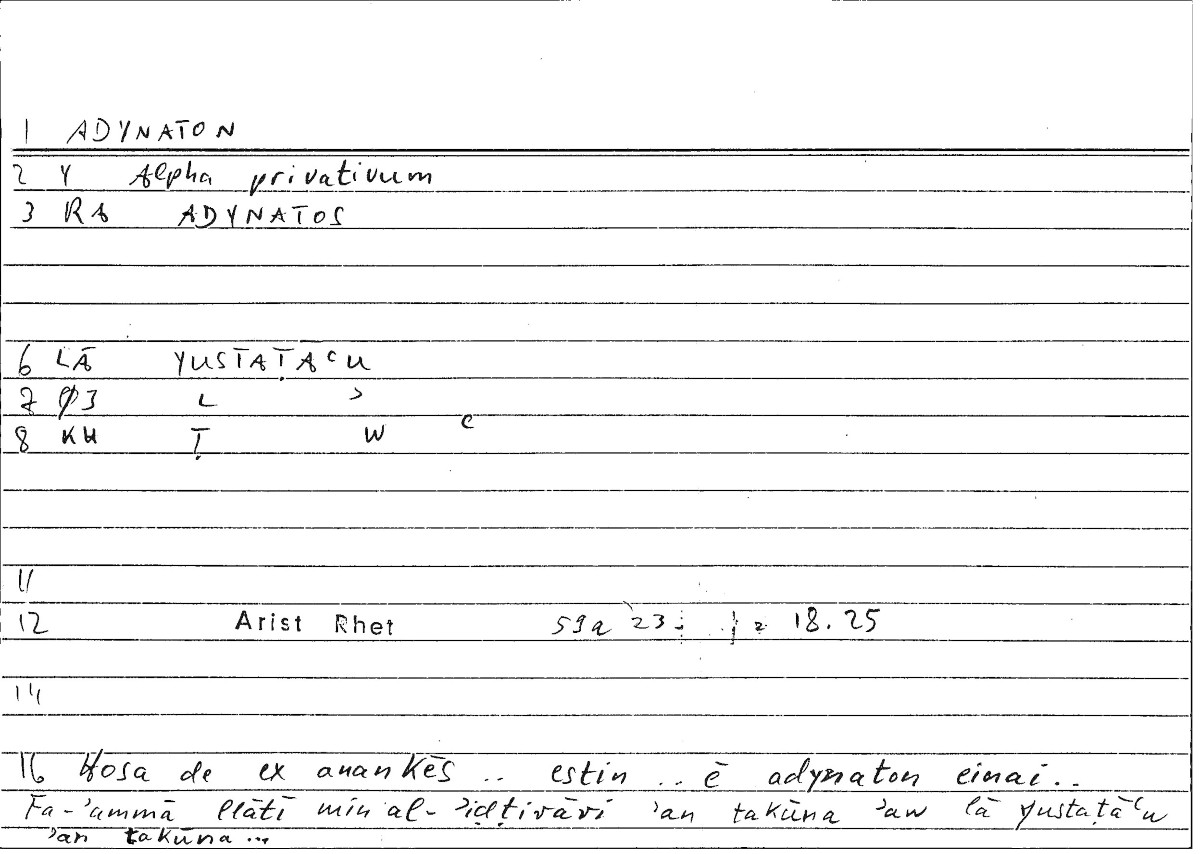 1 ADYNATON
2 Y Alpha privativum
3 RA ADYNATOS
6 LĀ YUSTAṬĀʿU
7 Ø3 L ʾ
8 KH Ṭ W ʿ
11
12 Arist Rhet 59a 23; = 18.25
14
16 Hosa de ex anankēs .. estin .. ē adynaton einai..
Fa-ʾammā llātī min al-ʾiḍṭirāri ʾan takūna ʾaw lā yustaṭāʿu
ʾan takūna...